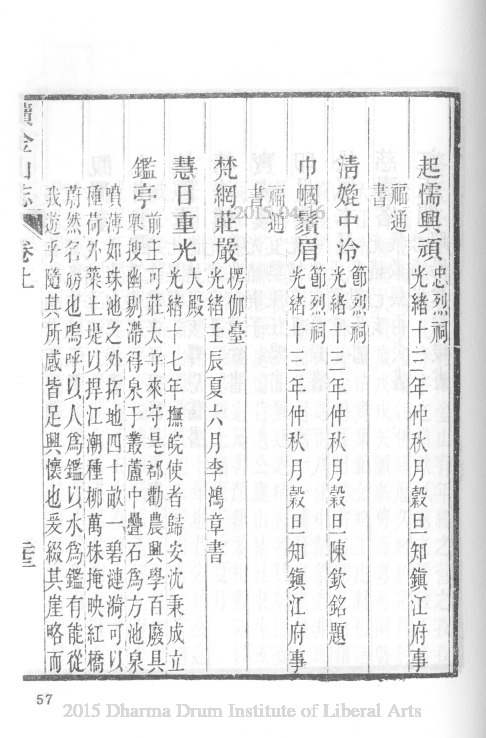 起懦興頑 忠烈祠
光緒十三年仲秋月穀旦知鎮江府事
福通
書
清媲中泠 節烈祠
光緒十三年仲秋月穀旦陳欽銘題
巾幗鬚眉 節烈祠
光緒十三年仲秋月穀旦知鎮江府事
福通
書
梵網莊嚴 楞伽臺
光緒壬辰夏六月李鴻章書
慧日重光 大殿
光緒十七年撫皖使者歸安沈秉成立
鑑亭 前王可莊太守來守是郡勸農興學百廢具
舉搜幽剔滯得泉于叢蘆中疊石為方池泉
噴薄如珠池之外拓地四十畝一碧漣漪可以
種荷外築土堤以捍江潮種柳萬株掩映紅橋
蔚然名勝也嗚呼以人為鑑以水為鑑有能從
我遊乎隨其所感皆足興懷也爰綴其崖略而
續金山志 卷上 二十三
57
2015.04.16
2015 Dharma Drum Institute of Liberal Arts